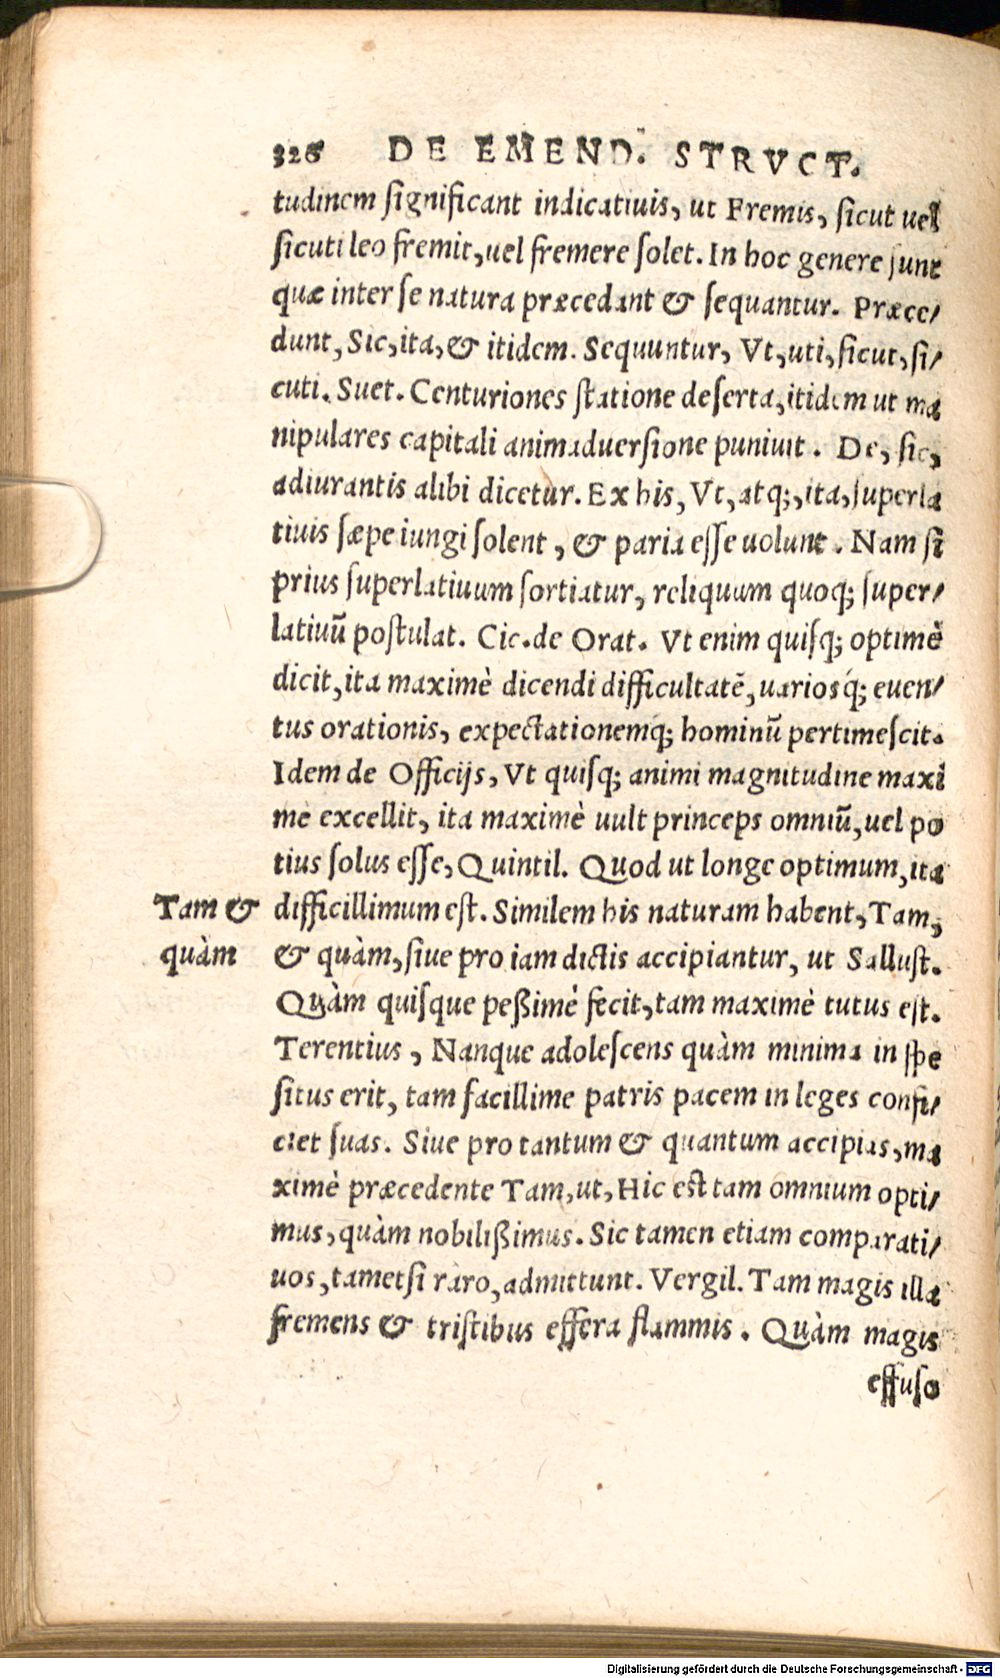 326 DE EMEND. STRVCT.
tudinem ſignificant indicatiuis, ut Fremis, ſicut uel
ſicuti leo fremit, uel fremere ſolet. In hoc genere ſunt
quæ inter ſe natura præcedant & ſequantur. Præce/
dunt, Sic, ita, & itidem. Sequuntur, Vt, uti, ſicut, ſi/
cuti. Suet. Centuriones ſtatione deſerta, itidem ut ma
nipulares capitali animaduerſione puniuit. De, ſic,
adiurantis alibi dicetur. Ex his, Vt, atq;, ita, ſuperla
tiuis ſæpe iungi ſolent, & paria eſſe uolunt. Nam ſi
prius ſuperlatiuum ſortiatur, reliquum quoq; ſuper/
latiuũ poſtulat. Cic. de Orat. Vt enim quiſq; optimè
dicit, ita maximè dicendi difficultatẽ, uariosq́; euen/
tus orationis, expectationemq́; hominũ pertimeſcit.
Idem de Officijs, Vt quiſq; animi magnitudine maxi
mè excellit, ita maximè uult princeps omniũ, uel po
tius ſolus eſſe, Quintil. Quod ut longe optimum, ita
Tam & difficillimum eſt. Similem his naturam habent, Tam,
quàm & quàm, ſiue pro iam dictis accipiantur, ut Salluſt.
Quàm quiſque peßimè fecit, tam maximè tutus eſt.
Terentius, Nanque adoleſcens quàm minima in ſpe
ſitus erit, tam facillime patris pacem in leges confi/
ciet ſuas. Siue pro tantum & quantum accipias, ma
ximè præcedente Tam, ut, Hic eſt tam omnium opti/
mus, quàm nobilißimus. Sic tamen etiam comparati/
uos, tametſi raro, admittunt. Vergil. Tam magis illa
fremens & triſtibus effera flammis. Quàm magis
effuſo
Digitalisierung gefördert durch die Deutsche Forschungsgemeinschaft - DFG